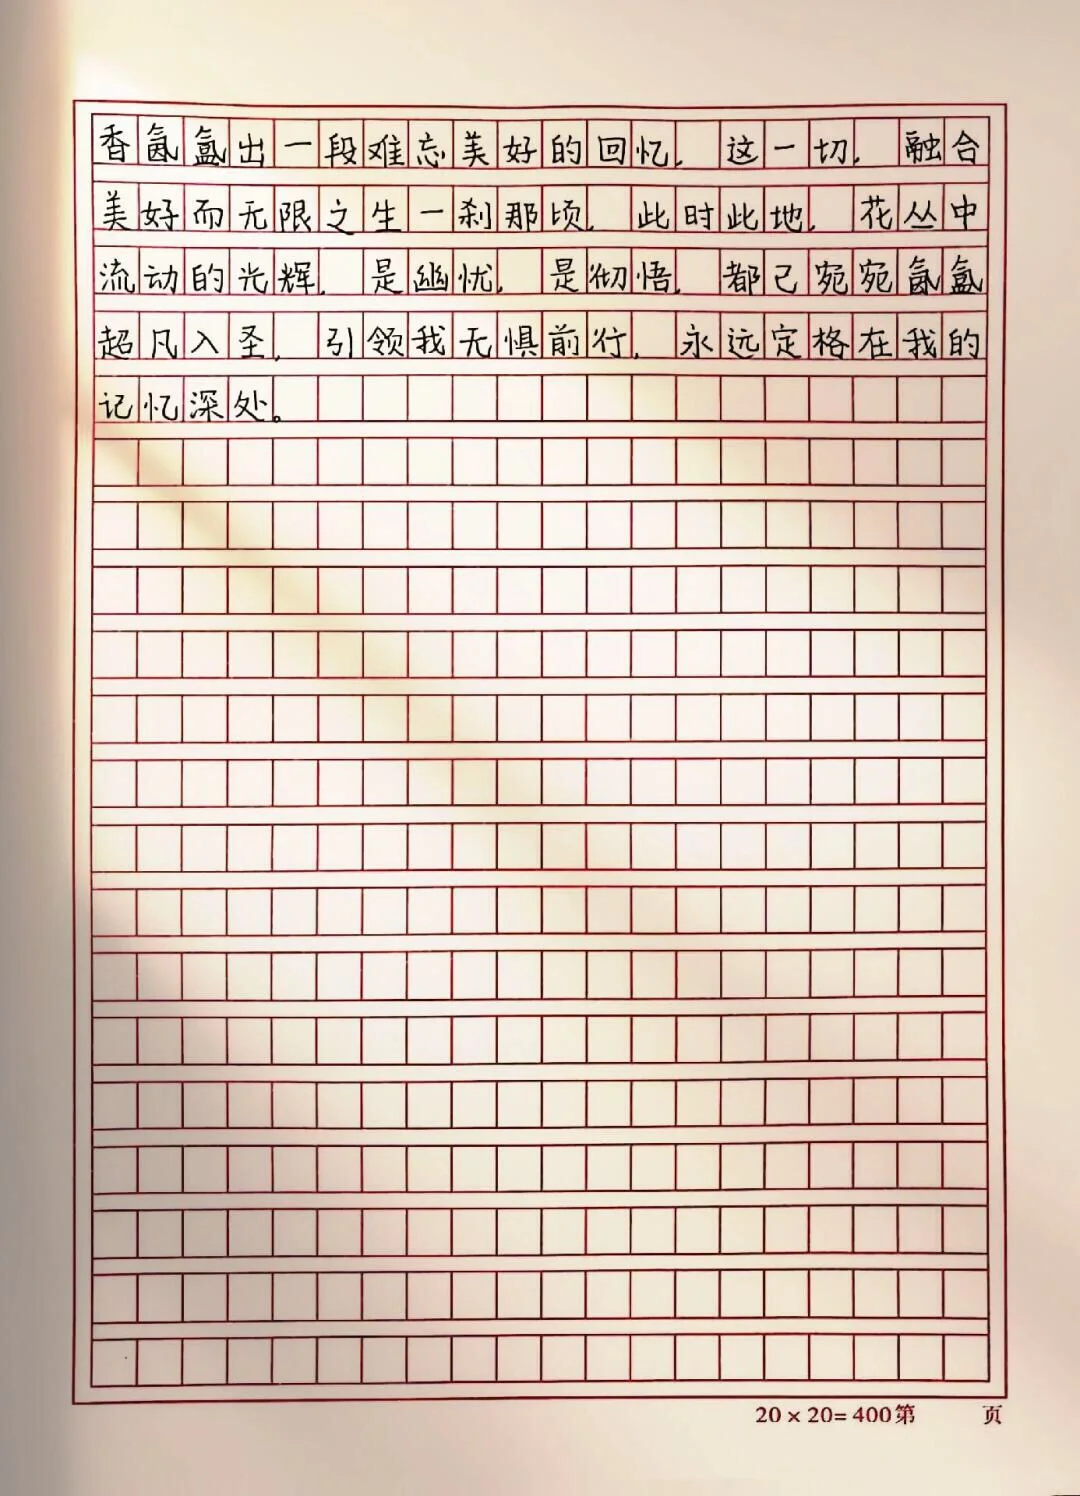 香氤氲出一段难忘美好的回忆，这一切，融合
美好而无限之生一刹那顷，此时此地，花丛中
流动的光辉，是幽忧，是彻悟，都已宛宛氤氲
超凡入圣，引领我无惧前行，永远定格在我的
记忆深处。
20×20=400第 页